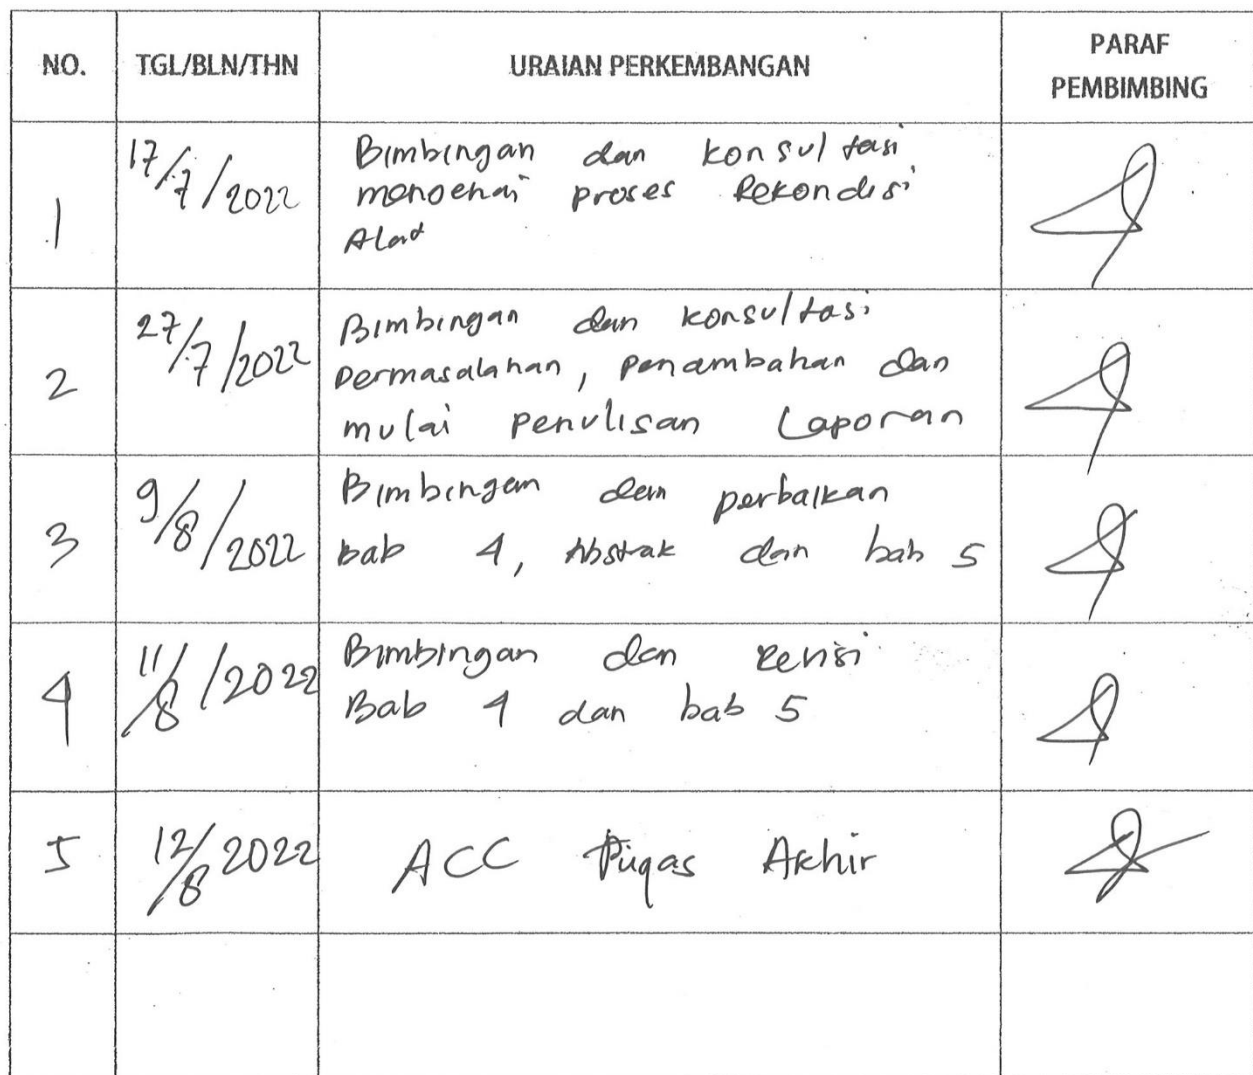 NO.
TGL/BLN/THN
URAIAN PERKEMBANGAN
PARAF
PEMBIMBING
1
17/7/2022
Bimbingan dan konsultasi
mengenai proses Rekondisi
Alat
2
27/7/2022
Bimbingan dan konsultasi
permasalahan, penambahan dan
mulai penulisan Laporan
3
9/8/2022
Bimbingan dan perbaikan
bab 4, Abstrak dan bab 5
4
11/8/2022
Bimbingan dan Revisi
Bab 4 dan bab 5
5
12/8 2022
ACC Tugas Akhir